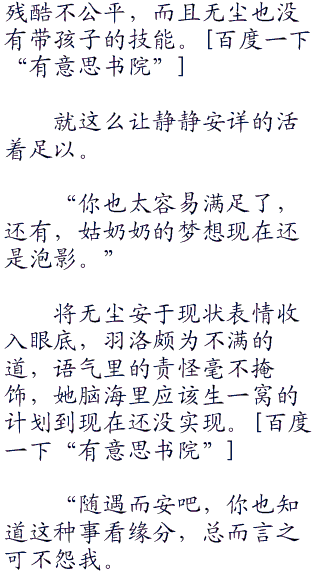 残酷不公平，而且无尘也没
有带孩子的技能。[百度一下
“有意思书院”]
就这么让静静安详的活
着足以。
“你也太容易满足了，
还有，姑奶奶的梦想现在还
是泡影。”
将无尘安于现状表情收
入眼底，羽洛颇为不满的
道，语气里的责怪毫不掩
饰，她脑海里应该生一窝的
计划到现在还没实现。[百度
一下“有意思书院”]
“随遇而安吧，你也知
道这种事看缘分，总而言之
可不怨我。